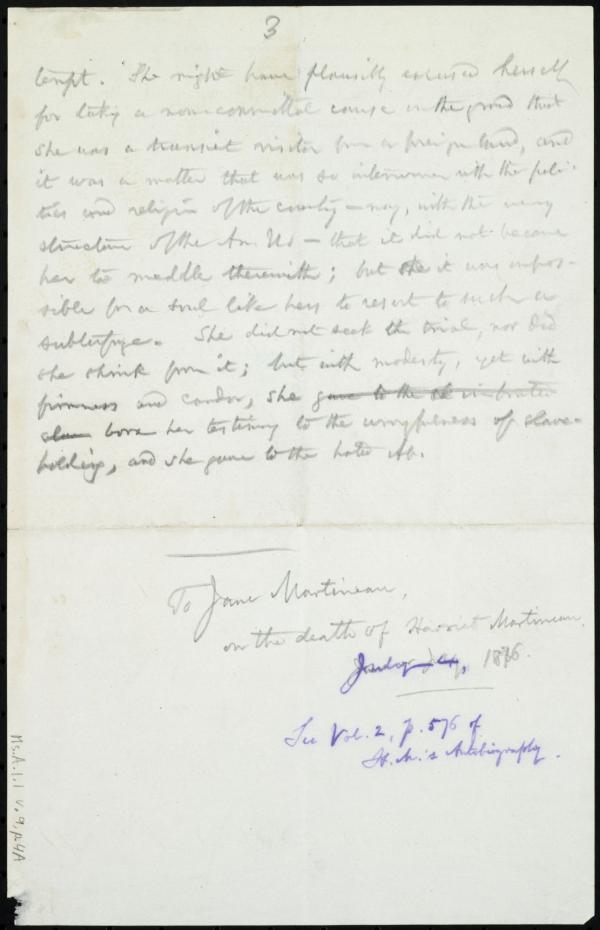 3
tempt. She might have plausibly excused herself
for taking a non-committal course on the ground that
she was a transient visitor from a foreign land, and
it was a matter that was so interwoven with the poli-
tics and religion of the country — nay, with the very
structure of the Am. Un — that it did not become
her to meddle therewith; but it was impos-
sible for a soul like hers to resort to such a
subterfuge. She did not seek the trial, nor did
she shrink from it; but with modesty, yet with
firmness and candor, she gave to the
bore her testimony to the wrongfulness of slave-
holding, and she gave to the hated Ab.
To Jane Martineau,
on the death of Harriet Martineau.
1876.
See Vol. 2, p. 576 of
H. M.'s Autobiography.
Ms.A.1.1 v.9, p.4A